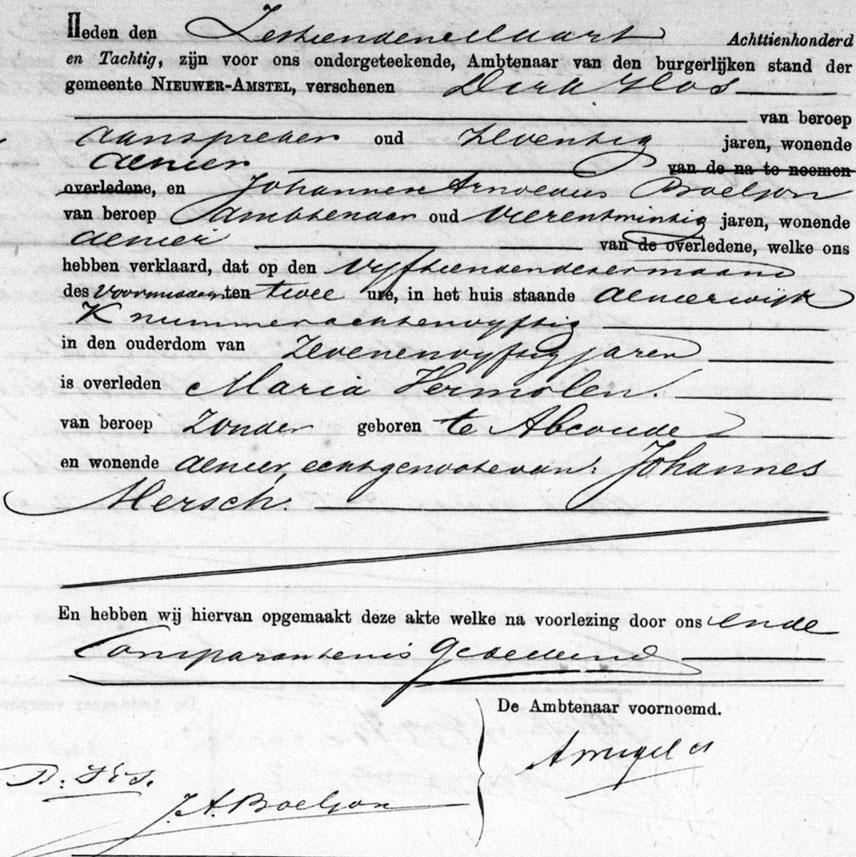 Heden den Zestienden Maart Achttienhonderd
en Tachtig, zijn voor ons ondergeteekende, Ambtenaar van den burgerlijken stand der
gemeente NIEUWER-AMSTEL, verschenen Dirk Klos
van beroep
aanspreker oud Zeventig jaren, wonende
alhier van de na te noemen
overledene, en Johannes Arnoldus Boelson
van beroep ambtenaar oud vierentwintig jaren, wonende
alhier van de overledene, welke ons
hebben verklaard, dat op den vyftienden dezer maand
des voormiddags ten twee ure, in het huis staande alhier wijk
K nummer achtenvyftig
in den ouderdom van Zevenenvyftig jaren
is overleden Maria Vermolen.
van beroep Zonder geboren te Abcoude
en wonende alhier, echtgenoote van: Johannes
Mersch.
En hebben wij hiervan opgemaakt deze akte welke na voorlezing door ons en de
Comparanten is geteekend
De Ambtenaar voornoemd.
J. A. Boelson